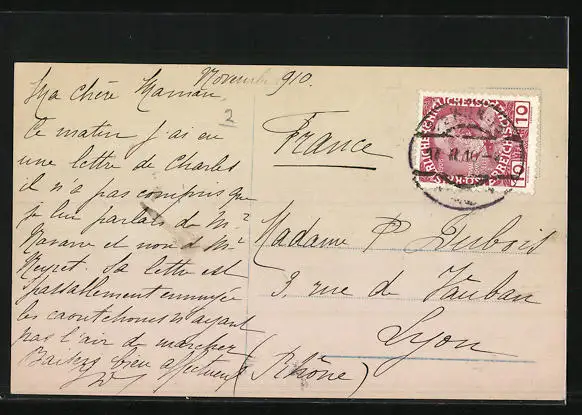 Novembre 910.
Ma chère Maman,
2
Ce matin j'ai eu
une lettre de Charles
il n'a pas compris que
je lui parlais de Mr
Navarre et non de Mr
Neyret. Sa lettre est
passablement ennuyée
les caoutchoucs n'ayant
pas l'air de marcher
Baisers bien affectueux
France
Madame P Dubois
3, rue de Vauban
Lyon
(Rhône)
10
10